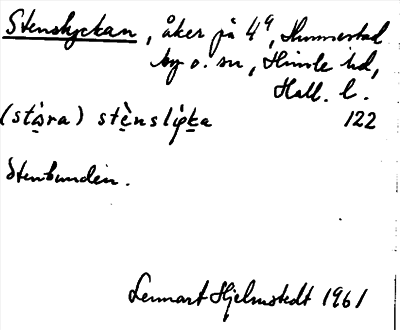 Stenslyckan, åker på 4ª, Hunnestad
by o. sn, Himle hd,
Hall. l.
(stọ̀ra) stẹ̀nslỳḳa 122
Stenbunden.
Lennart Hjelmstedt 1961